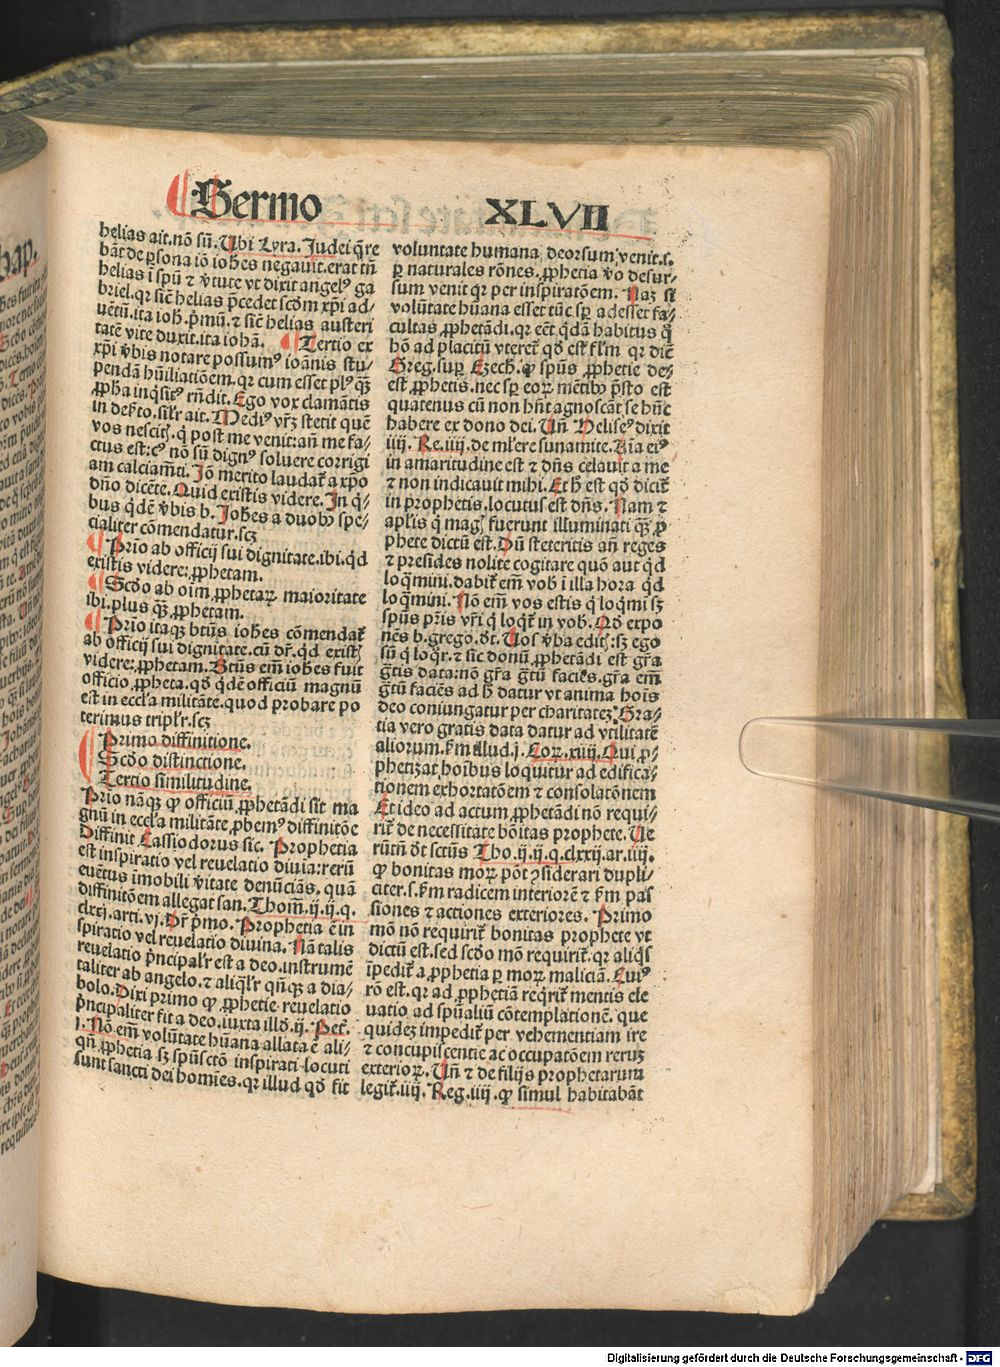 Sermo XLVII
helias ait.nō sū. Ubi Lyra. Judei q̄re
bāt de ꝑsona iō iohes negauit.erat tn̄
helias ī spū ⁊ v̓tute vt dixit angelꝰ ga
briel.qr sic̄ helias p̄cedet scd̓m xp̄i ad-
uētū.ita ioh̄.p̄mū.⁊ sic̄ helias austeri
tatē vite duxit.ita iohā. ¶ Tertio ex
xp̄i v̓bis notare possumꝰ ioānis stu-
pendā hūiliatiōem.qr cum esset plꝰ qȝ̄
ꝓpha inq̓sitꝰ rn̄dit. Ego vox clamātis
in deẜto.sil̓r ait. Mediꝰ vr̄ȝ stetit quē
vos nescitꝭ.q̓ post me venit:an̄ me fa-
ctus est:cꝰ nō sū dignꝰ soluere corrigi
am calciam̄ti. Iō merito laudat̄ a xp̄o
dn̄o dicēte. Quid existis videre. In q̓-
bus q̓dē v̓bis b. Johes a duobꝰ spe-
cialiter cōmendatur.scȝ
¶ Prīo ab officij sui dignitate.ibi.qd̓
existis videre:ꝓphetam.
¶ Scd̓o ab oīm ꝓphetaꝝ maioritate
ibi.plus qȝ̄ ꝓphetam.
¶ Prīo itaqȝ btūs iohes cōmendat̄
ab officij sui dignitate.cū dr̄.qd̓ existꝭ
videre:ꝓphetam. Btūs em̄ iohes fuit
officio ꝓpheta.qd̓ q̓dē officiū magnū
est in eccl̓a militāte.quod probare po
terimus tripl̓r.scȝ
Primo diffinitione.
Scd̓o distinctione.
Tertio similitudine.
Prīo nāqȝ ꝙ officiū ꝓphetādi sit ma
gnū in eccl̓a militāte ꝓbemꝰ diffinitōe
Diffinit Cassiodorus sic. Prophetia
est inspiratio vel reuelatio diuīa:rerū
euētus īmobili v̓itate denūciās. quā
diffinitōem allegat san. Thom̄.ij.ij.q.
clxxj.arti.vj. Dr̄ p̓mo. Prophetia ē in
spiratio vel reuelatio diuina. Nā talis
reuelatio p̓ncipal̓r est a deo.instrumē
taliter ab angelo.⁊ aliq̓l̓r qn̄qȝ a dia-
bolo. Dixi primo ꝙ ꝓphetie reuelatio
p̓ncipaliter fit a deo.iuxta illd̓.ij. Pet̄.
j. Nō em̄ volūtate hūana allata ē ali-
qn̄ ꝓphetia sȝ spūsctō inspirati locuti
sunt sancti dei homīes.qr illud qd̓ fit
voluntate humana deorsum venit.s.
ꝑ naturales rōnes. ꝓphetia v̓o desur-
sum venit qr per inspiratōem. Naȝ si
volūtate hūana esset tūc sꝑ adesset fa-
cultas ꝓphetādi.qr eēt q̓dā habitus q̓
hō ad placitū vteret̄ qd̓ est fl̓m qr dic̄
Greg.suꝑ Ezech. ꝙ spūs ꝓphetie de-
est ꝓphetis.nec sꝑ eoꝝ mētibꝰ p̄sto est
quatenus cū non hn̄t agnoscāt se hūc
habere ex dono dei. Un̄ Heliseꝰ dixit
iiij. Re.iiij.de ml̓iere sunamite. Aīa eiꝰ
in amaritudine est ⁊ dn̄s celauit a me
⁊ non indicauit mihi. Et h̓ est qd̓ dicit̄
in prophetis.locutus est dn̄s. Nam ⁊
apl̓is q̓ magꝭ fuerunt illuminati qȝ̄ ꝓ
phete dictū est. Dū steteritis an̄ reges
⁊ presides nolite cogitare quō aut qd̓
loq̓mini.dabit̄ em̄ vob̄ ī illa hora qd̓
loq̓mini. Nō em̄ vos estis q̓ loq̓mi sȝ
spūs pr̄is vr̄i q̓ loqt̄ in vob̄. Qd̓ expo
nēs b.grego.dt̄. Uos v̓ba editꝭ:sȝ ego
sū q̓ loq̓r.⁊ sic donū ꝓphetādi est gr̄a
gr̄tis data:nō gr̄a gr̄tū faciēs.gr̄a em̄
gr̄tū faciēs ad h̓ datur vt anima hoīs
deo coniungatur per charitateȝ. Gra-
tia vero gratis data datur ad vtilitatē
aliorum.ẜm illud.j. Coꝝ.xiiij. Qui ꝓ-
phetiȝat hoībus loquitur ad edifica-
tionem exhortatōem ⁊ consolatōnem
Et ideo ad actum ꝓphetādi nō requi-
rit̄ de necessitate bōitas prophete. Ue
rūtn̄ dt̄ sctūs Tho.ij.ij.q.clxxij.ar.iiij.
ꝙ bonitas moꝝ pōt ɔsiderari dupli-
citer.s.ẜm radicem interiorē ⁊ ẜm pas
siones ⁊ actiones exteriores. Primo
mō non requirit̄ bonitas prophete vt
dictū est.sed scd̓o mō requirit̄.qr aliq̓s
īpedit̄ a ꝓphetia ꝑ moꝝ maliciā. Cuiꝰ
rō est.qr ad ꝓphetiā req̓rit̄ mentis ele
uatio ad spūaliū cōtemplationē. que
quideȝ impedit̄ per vehementiam ire
⁊ concupiscentie ac occupatōem rerūȝ
exterioꝝ. Un̄ ⁊ de filijs prophetarum
legit̄.iiij. Reg.iiij.ꝙ simul habitabāt
Digitalisierung gefördert durch die Deutsche Forschungsgemeinschaft - DFG